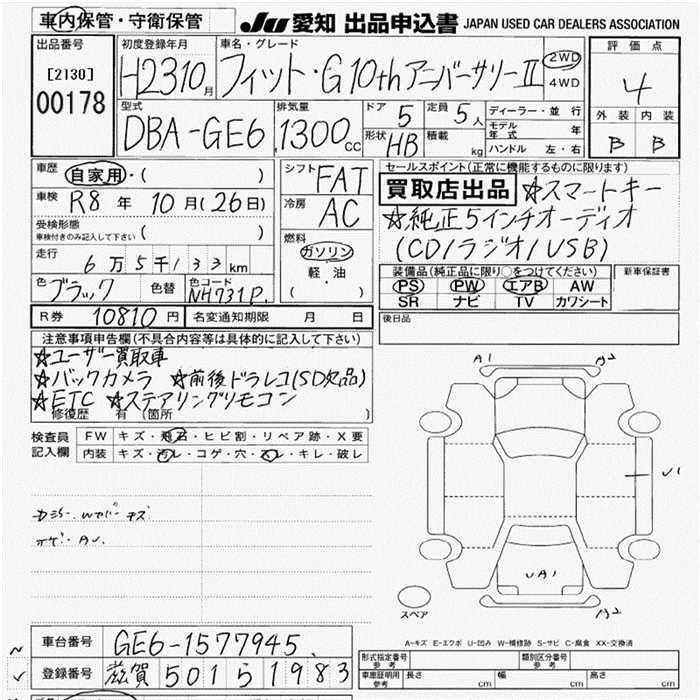 車内保管・守衛保管
JU 愛知 出品申込書 JAPAN USED CAR DEALERS ASSOCIATION
出品番号
[2130]
00178
初度登録年月
H23 10月
車名・グレード
フィット・G10thアニバーサリーII
2WD
4WD
評価点
4
外装 内装
B B
型式
DBA-GE6
排気量
1300CC
ドア 5
形状 HB
定員 5人
積載 kg
ディーラー・並行
モデル年式 年
ハンドル 左・右
車歴 自家用・( )
車検 R8年 10月(26日)
受検形態
車検付きのみ記入して下さい ( )
走行 6万5千133km
色 ブラック 色替 色コード NH731P.
シフト FAT
冷房 AC
燃料
ガソリン
軽・油
( )
セールスポイント(正常に機能するものに限ります)
買取店出品 ☆スマートキー
☆純正5インチオーディオ
(CD/ラジオ/USB)
装備品(純正品に限り○をつけてください)
PS PW エアB AW
SR ナビ TV カワシート
新車保証書
R券 10810円 名変通知期限 月 日
後日品
注意事項申告欄(不具合内容等は具体的に記入して下さい)
☆ユーザー買取車
☆バックカメラ ☆前後ドラレコ(SD欠品)
☆ETC ☆ステアリングリモコン
修復歴 有 (箇所 )
検査員記入欄
FW キズ・飛石・ヒビ割・リペア跡・X要
内装 キズ・汚レ・コゲ・穴・スレ・キレ・破レ
A1 A2
UA1
A2
スペア
A-キズ E-エクボ U-凹み W-補修跡 S-サビ C-腐食 XX-交換済
車台番号 GE6-1577945
登録番号 滋賀 501 ら 1983
形式指定番号 参考
類別区分番号 参考
車庫証明用 参考 長さ cm 幅 cm 高さ cm